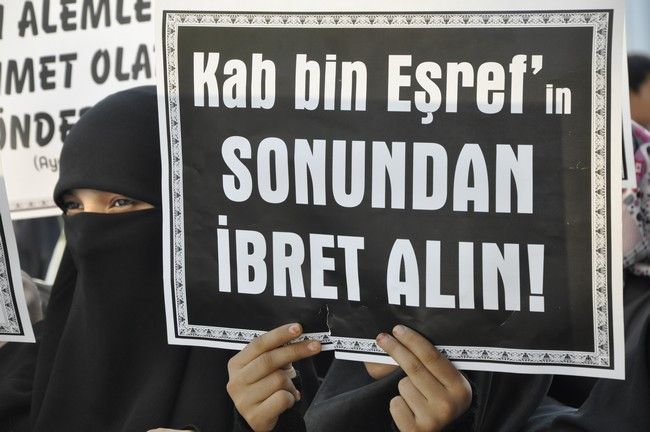 ALEMLE
MET OLA
NDE
(Ay
Kab bin Eşref'in
SONUNDAN
İBRET ALIN!